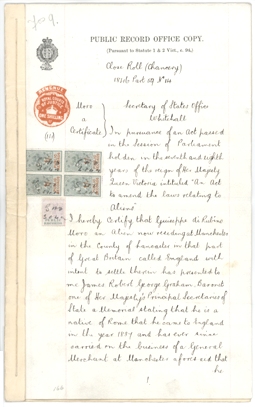 PUBLIC RECORD OFFICE COPY.
(Pursuant to Statute 1 & 2 Vict., c. 94.)
Close Roll (Chancery)
Part No
Moro
a
Certificate
Secretary of State's Office
Whitehall
In pursuance of an Act passed
in the Session of Parliament
holden in the seventh and eighth
years of the reign of Her Majesty
Queen Victoria intituled "An Act
to amend the laws relating to
Aliens"
I hereby Certify that Guiseppe
Moro an Alien now residing at Manchester
in the County of Lancaster in that part
of Great Britain called England with
intent to settle therein has presented to
me James Robert George Graham Baronet
one of Her Majesty's Principal Secretaries of
State a Memorial stating that he is a
native of Rome that he came to England
in the year and has ever since
carried on the business of a General
Merchant at Manchester aforesaid that
he